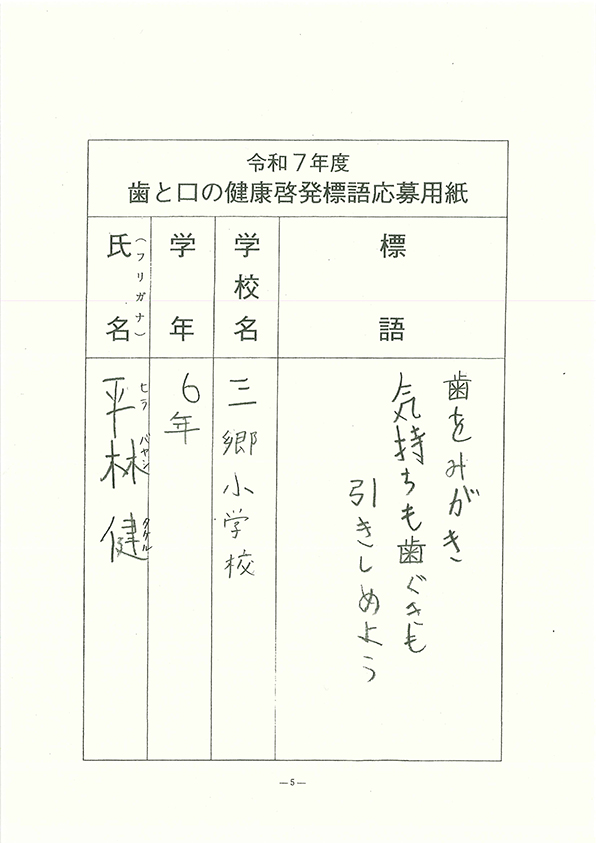 令和7年度
歯と口の健康啓発標語応募用紙
標語
歯をみがき
気持ちも歯ぐきも
引きしめよう
学校名
三郷小学校
学年
6年
氏名
(フリガナ)
平林 健
ヒラ バヤシ タケル
—5—